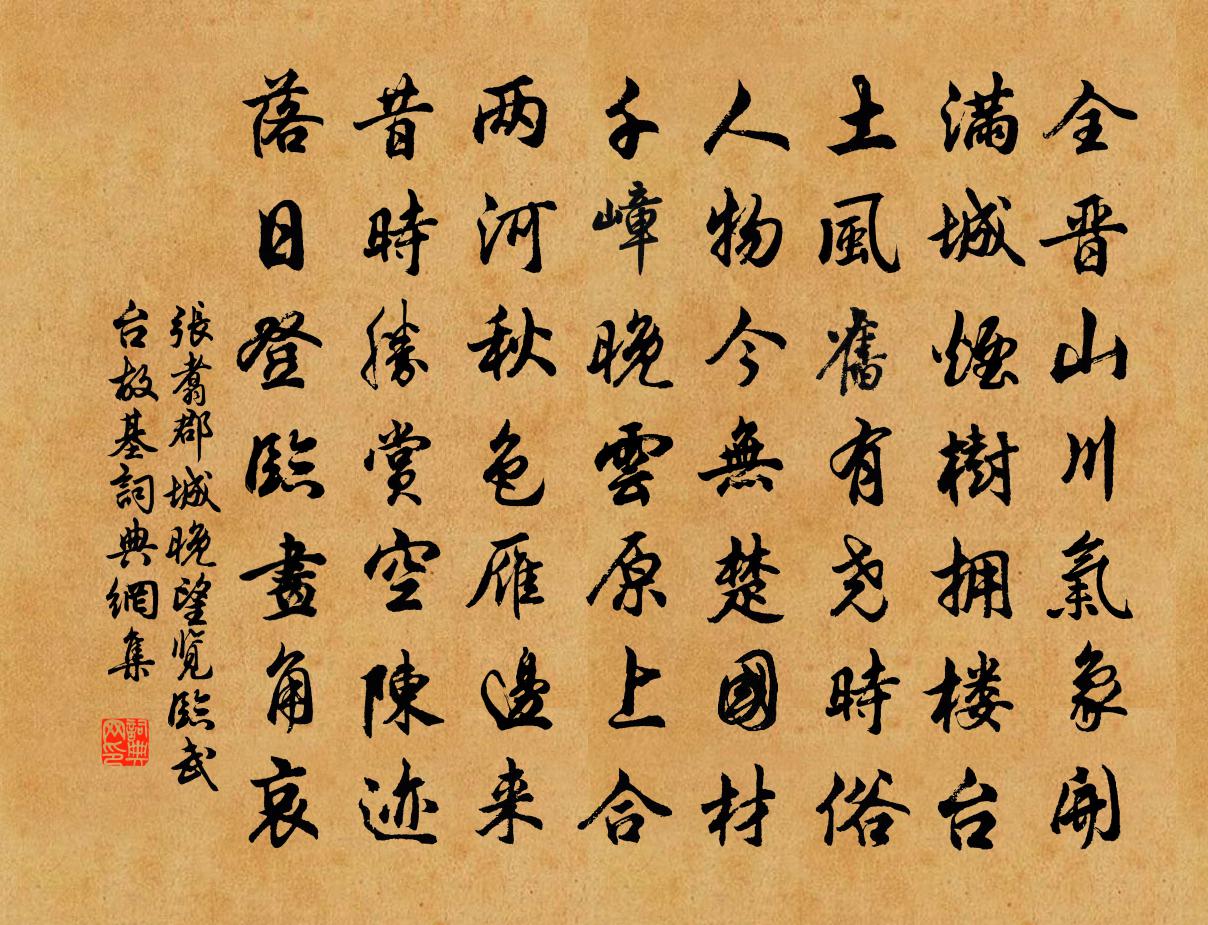 全晋山川氣象開
滿城煙樹拥楼台
土風舊有尧時俗
人物今無楚國材
千嶂晚雲原上合
两河秋色雁邊来
昔時勝赏空陳迹
落日登臨畫角哀
張翥郡城晚望览臨武
台故基詞典網集
詞典
网印